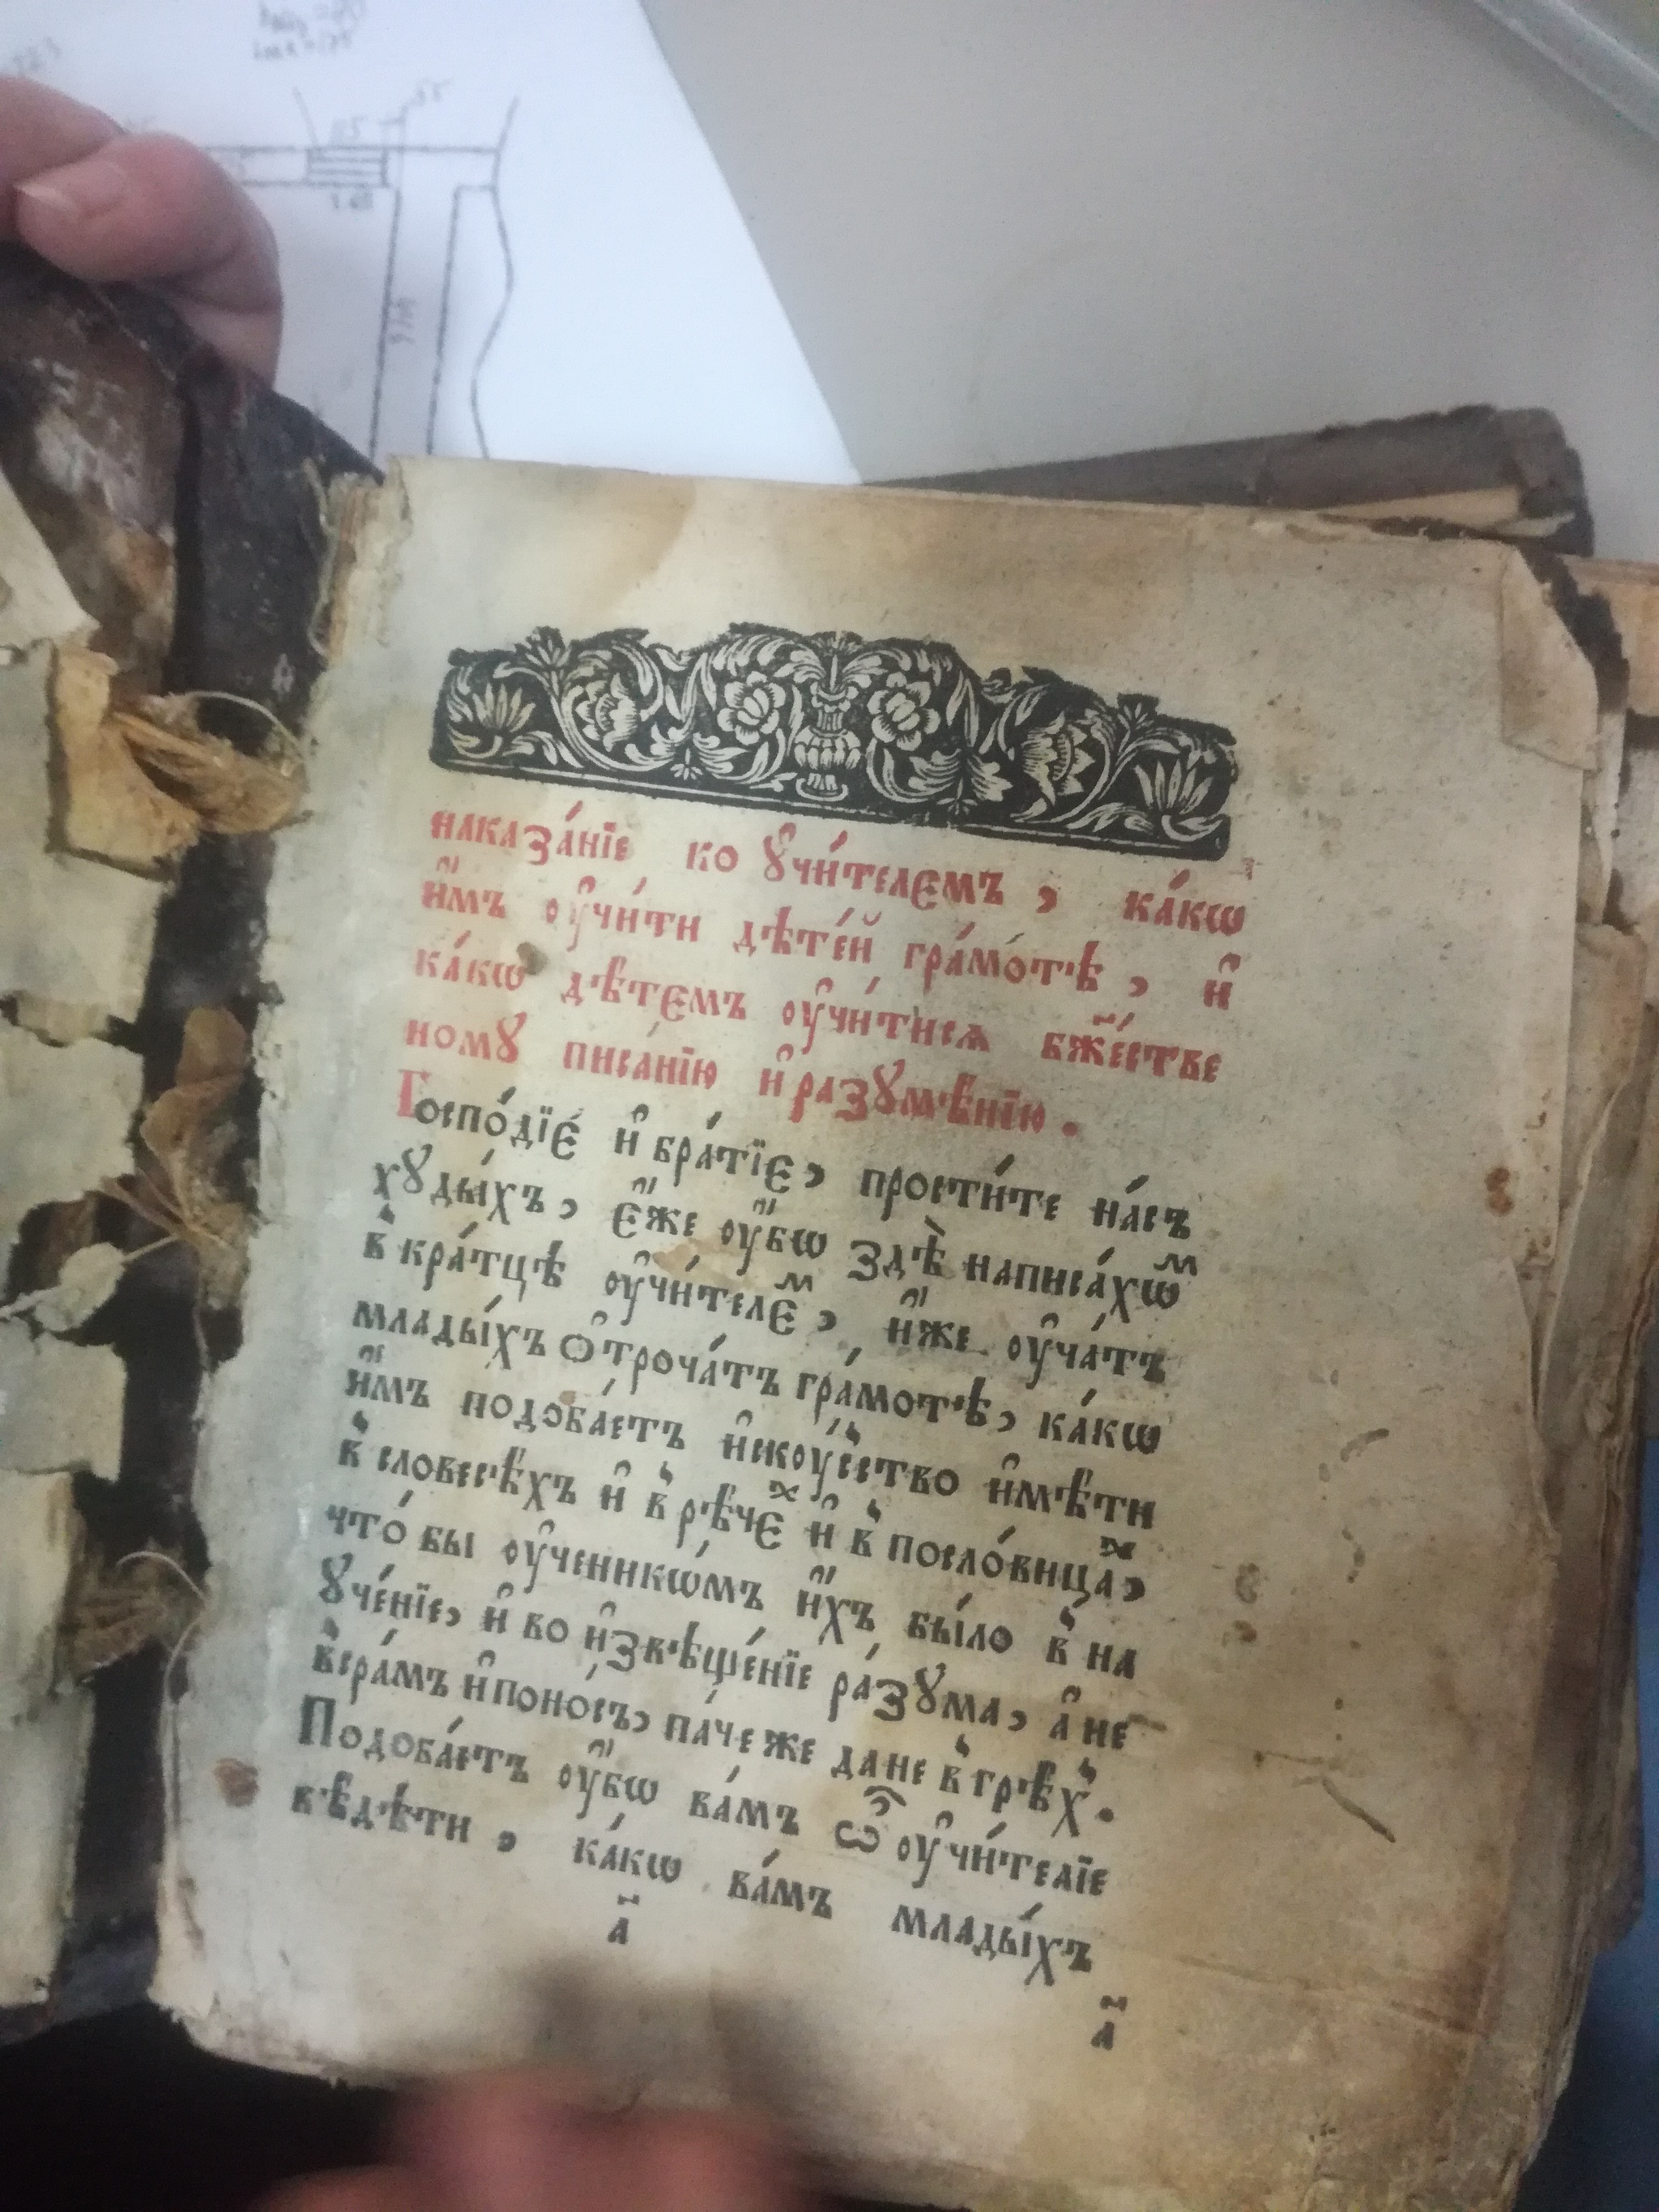 наказа́нїе ко ᲂу҆чи́телємъ, ка́кѡ
и҆̀мъ ᲂу҆чи́ти дѣте́й гра́мотѣ, и҆
ка́кѡ дѣ́тємъ ᲂу҆чи́тисѧ бж҃е́стве
номꙋ писа́нїю и҆ разꙋмѣ́нїю.
Госпо́дїє и҆ бра́тїє, прости́те на́съ
хꙋды́хъ, є҆́же ᲂу҆́бѡ здѣ̀ написа́хѡⷨ
в̾ кра́тцѣ ᲂу҆чи́телєⷨ, и҆́же ᲂу҆ча́тъ
млады́хъ ѻ҆троча́тъ гра́мотѣ, ка́кѡ
и҆̀мъ подоба́етъ и҆скᲂу́с̾ство и҆мѣ́ти
в̾ словесѣ́хъ и҆ в̾ рѣ́чєⷯ и҆ в̾ посло́вицаⷯ,
что́ бы ᲂу҆ченикѡ́мъ и҆́хъ бы́ло в̾ на
ꙋче́нїе, и҆ во и҆звѣще́нїе ра́зꙋма, а҆ не
в̾сра́мъ и҆ поно́съ, па́че же да не в̾ грѣ́х̾.
Подоба́етъ ᲂу҆́бѡ ва́мъ ѽ ᲂу҆чи́телїе
вѣ́дѣти, ка́кѡ ва́мъ млады́хъ
а҃
а҃